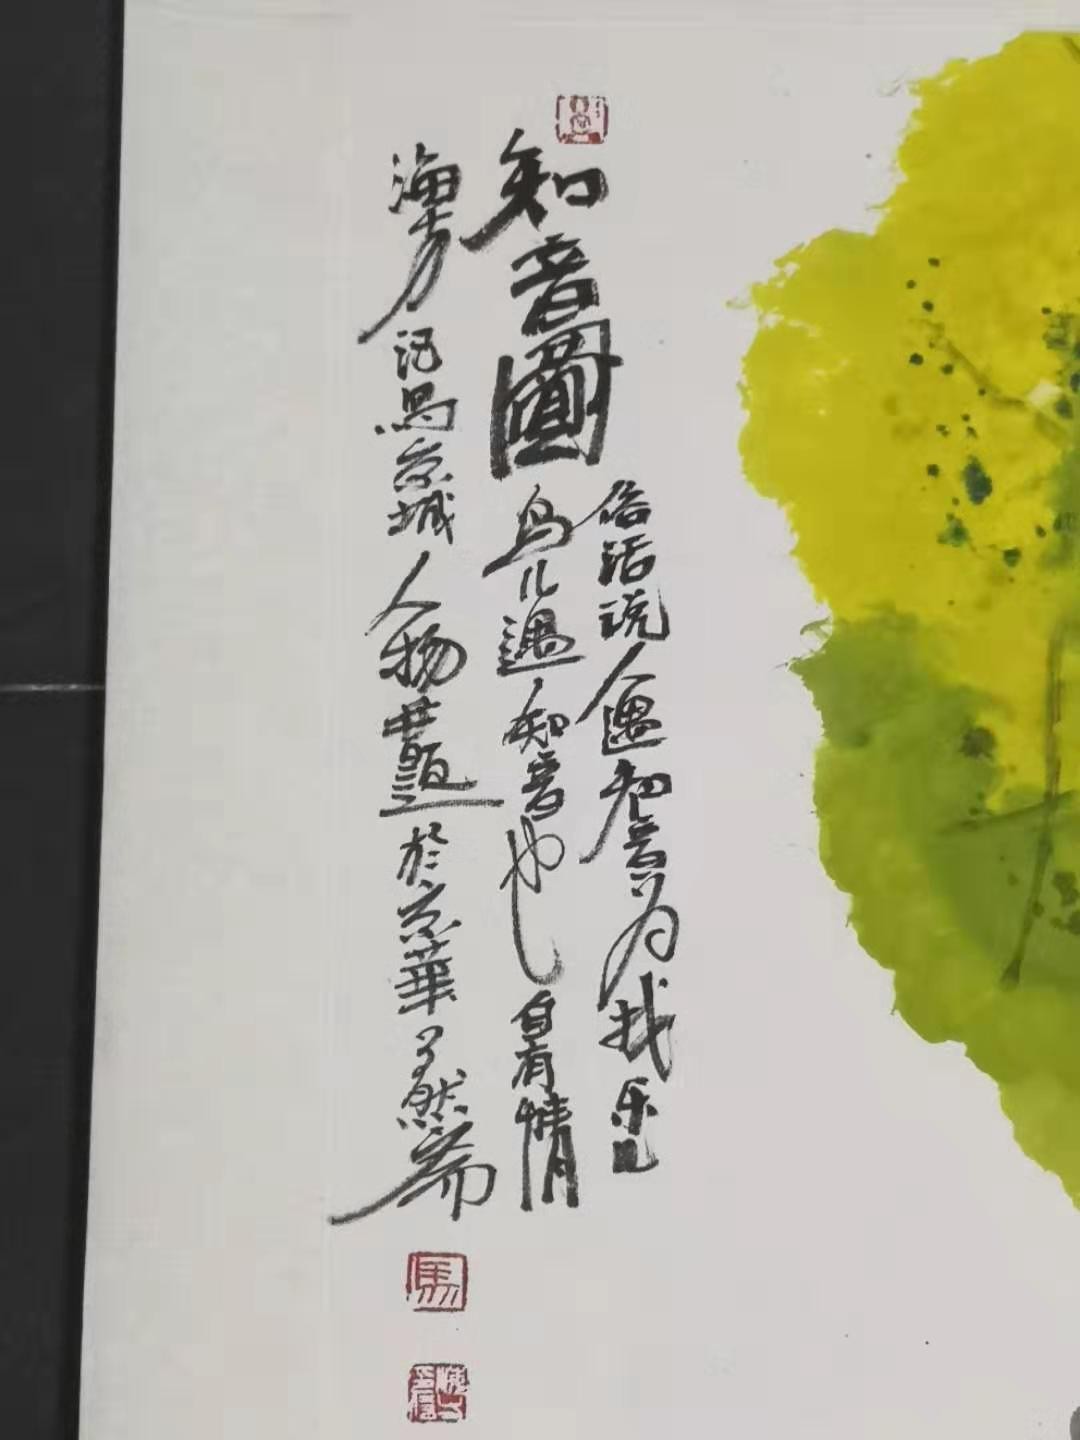 知音圖
俗话说人遇知音为找乐儿
鸟儿遇知音也自有情
海方记写京城人物并题於京華了然斋
馬